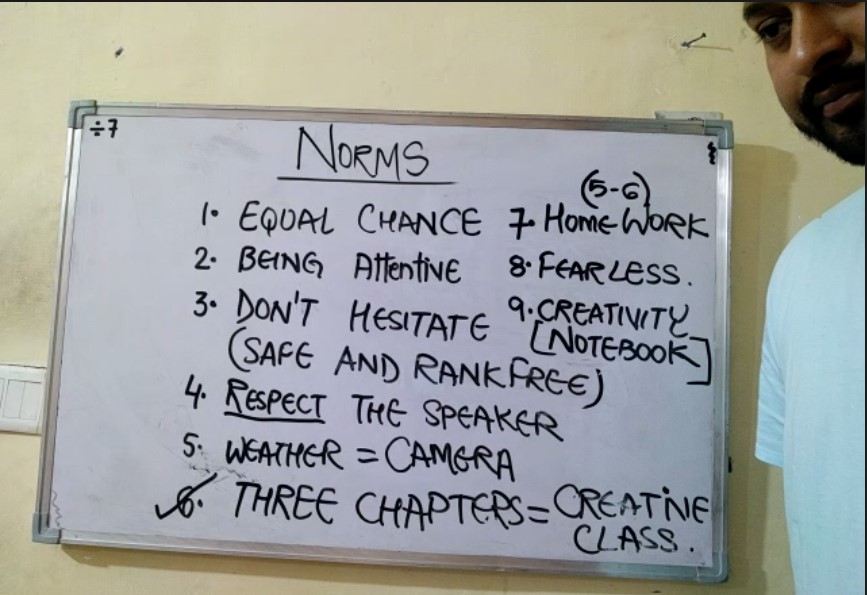 ÷7
NORMS
1. EQUAL CHANCE
2. BEING Attentive
3. DON'T HESITATE
(SAFE AND RANKFREE)
4. RESPECT THE SPEAKER
5. WEATHER = CAMERA
6. THREE CHAPTERS = CREATiNE
CLASS.
(5-6)
7. HomE WORK
8. FEARLESS.
9. CREATIVITY
[NOTEBOOK]